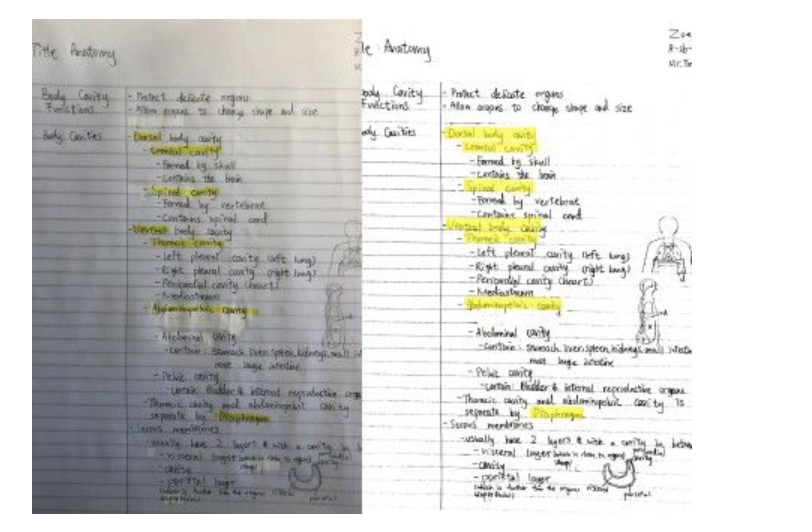 Title Anatomy
Body Cavity Functions
- Protect delicate organs
- Allow organs to change shape and size
Body Cavities
- Dorsal body cavity
- Cranial cavity
- Formed by skull
- Contains the brain
- Spinal cavity
- Formed by vertebrae
- Contains spinal cord
- Ventral body cavity
- Thoracic cavity
- Left pleural cavity (left lung)
- Right pleural cavity (right lung)
- Pericardial cavity (heart)
- Mediastinum
- Abdominopelvic cavity
- Abdominal cavity
- contain: stomach, liver, spleen, kidneys, small
most large intestine
- Pelvic cavity
- contain: Bladder & internal reproductive
- Thoracic cavity and abdominopelvic cavity
separate by Diaphragm
- Serous membranes
- usually have 2 layers & with a cavity in
- visceral layer
- cavity
- parietal layer
visceral
parietal
le Anatomy
Zoe
8-26-
Mr.
ody Cavity
Functions
- Protect delicate organs
- Allow organs to change shape and size
ody Cavities
- Dorsal body cavity
- Cranial cavity
- Formed by skull
- Contains the brain
- Spinal cavity
- Formed by vertebrae
- Contains spinal cord
- Ventral body cavity
- Thoracic cavity
- Left pleural cavity (left lung)
- Right pleural cavity (right lung)
- Pericardial cavity (heart)
- Mediastinum
- Abdominopelvic cavity
- Abdominal cavity
- contain: stomach, liver, spleen, kidneys, small
most large intestine
- Pelvic cavity
- contain: Bladder & internal reproductive organs
- Thoracic cavity and abdominopelvic cavity is
separate by Diaphragm
- Serous membranes
- usually have 2 layers & with a cavity in
- visceral layer
- cavity
- parietal layer
visceral
parietal